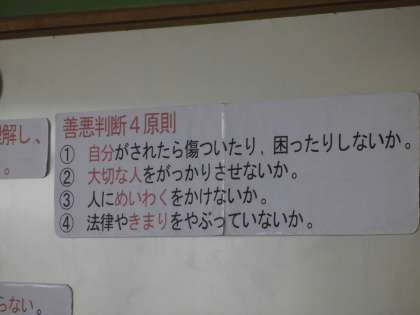 善悪判断4原則
① 自分がされたら傷ついたり、困ったりしないか。
② 大切な人をがっかりさせないか。
③ 人にめいわくをかけないか。
④ 法律やきまりをやぶっていないか。
解し、
。
らない。